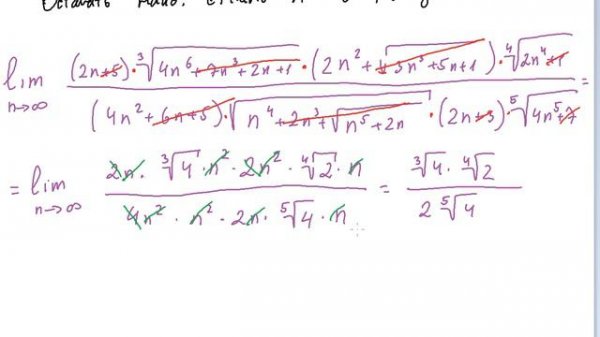 lim n→∞ (2n+5) · ∛(4n⁶+7n³+2n+1) · (2n²+∜(3n³+5n+1)) · ∜(2n⁴+1) / (4n²+6n+5) · √(n⁴+2n³+√(n⁵+2n)) · (2n+3) · ⁵√(4n⁵+7) =
= lim n→∞ 2n · ∛4 · n² · 2n² · ∜2 · n / 4n² · n² · 2n · ⁵√4 · n = ∛4 · ∜2 / 2 ⁵√4